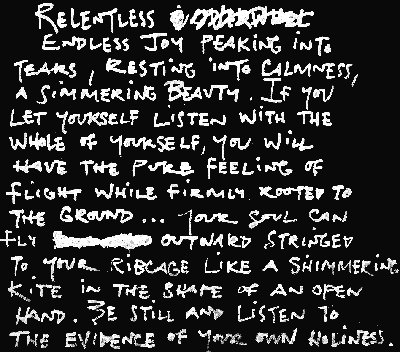 RELENTLESS
ENDLESS JOY PEAKING INTO
TEARS, RESTING INTO CALMNESS,
A SIMMERING BEAUTY. IF YOU
LET YOURSELF LISTEN WITH THE
WHOLE OF YOURSELF, YOU WILL
HAVE THE PURE FEELING OF
FLIGHT WHILE FIRMLY ROOTED TO
THE GROUND... YOUR SOUL CAN
FLY OUTWARD STRINGED
TO YOUR RIBCAGE LIKE A SHIMMERING
KITE IN THE SHAPE OF AN OPEN
HAND. BE STILL AND LISTEN TO
THE EVIDENCE OF YOUR OWN HOLINESS.